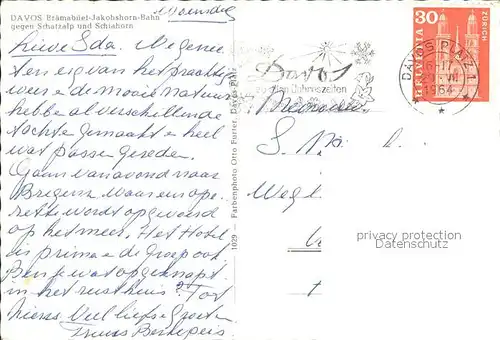 DAVOS Brämabüel-Jakobshorn-Bahn
gegen Schatzalp und Schiahorn
Woensdag
Lieve Ida. We genie
ten erg van het prachtig
weer en de mooie natuur
hebbe al verschillende
tochte gemaakt en heel
wat passen gereden.
Gaan vanavond naar
Bregenz waar een ope
rette wordt opgevoerd
op het meer. Het Hotel
is prima en de groep ook
Ben je wat opgeknapt
in het rusthuis? Tot
ziens. Veel liefs Groeten
Truus
1029 - Farbenphoto Otto Furter, Davos Platz
Davos
zu allen Jahreszeiten
DAVOS PLATZ 1
1964
HELVETIA
30
ZÜRICH
S.
Wegl
privacy protection
Datenschutz